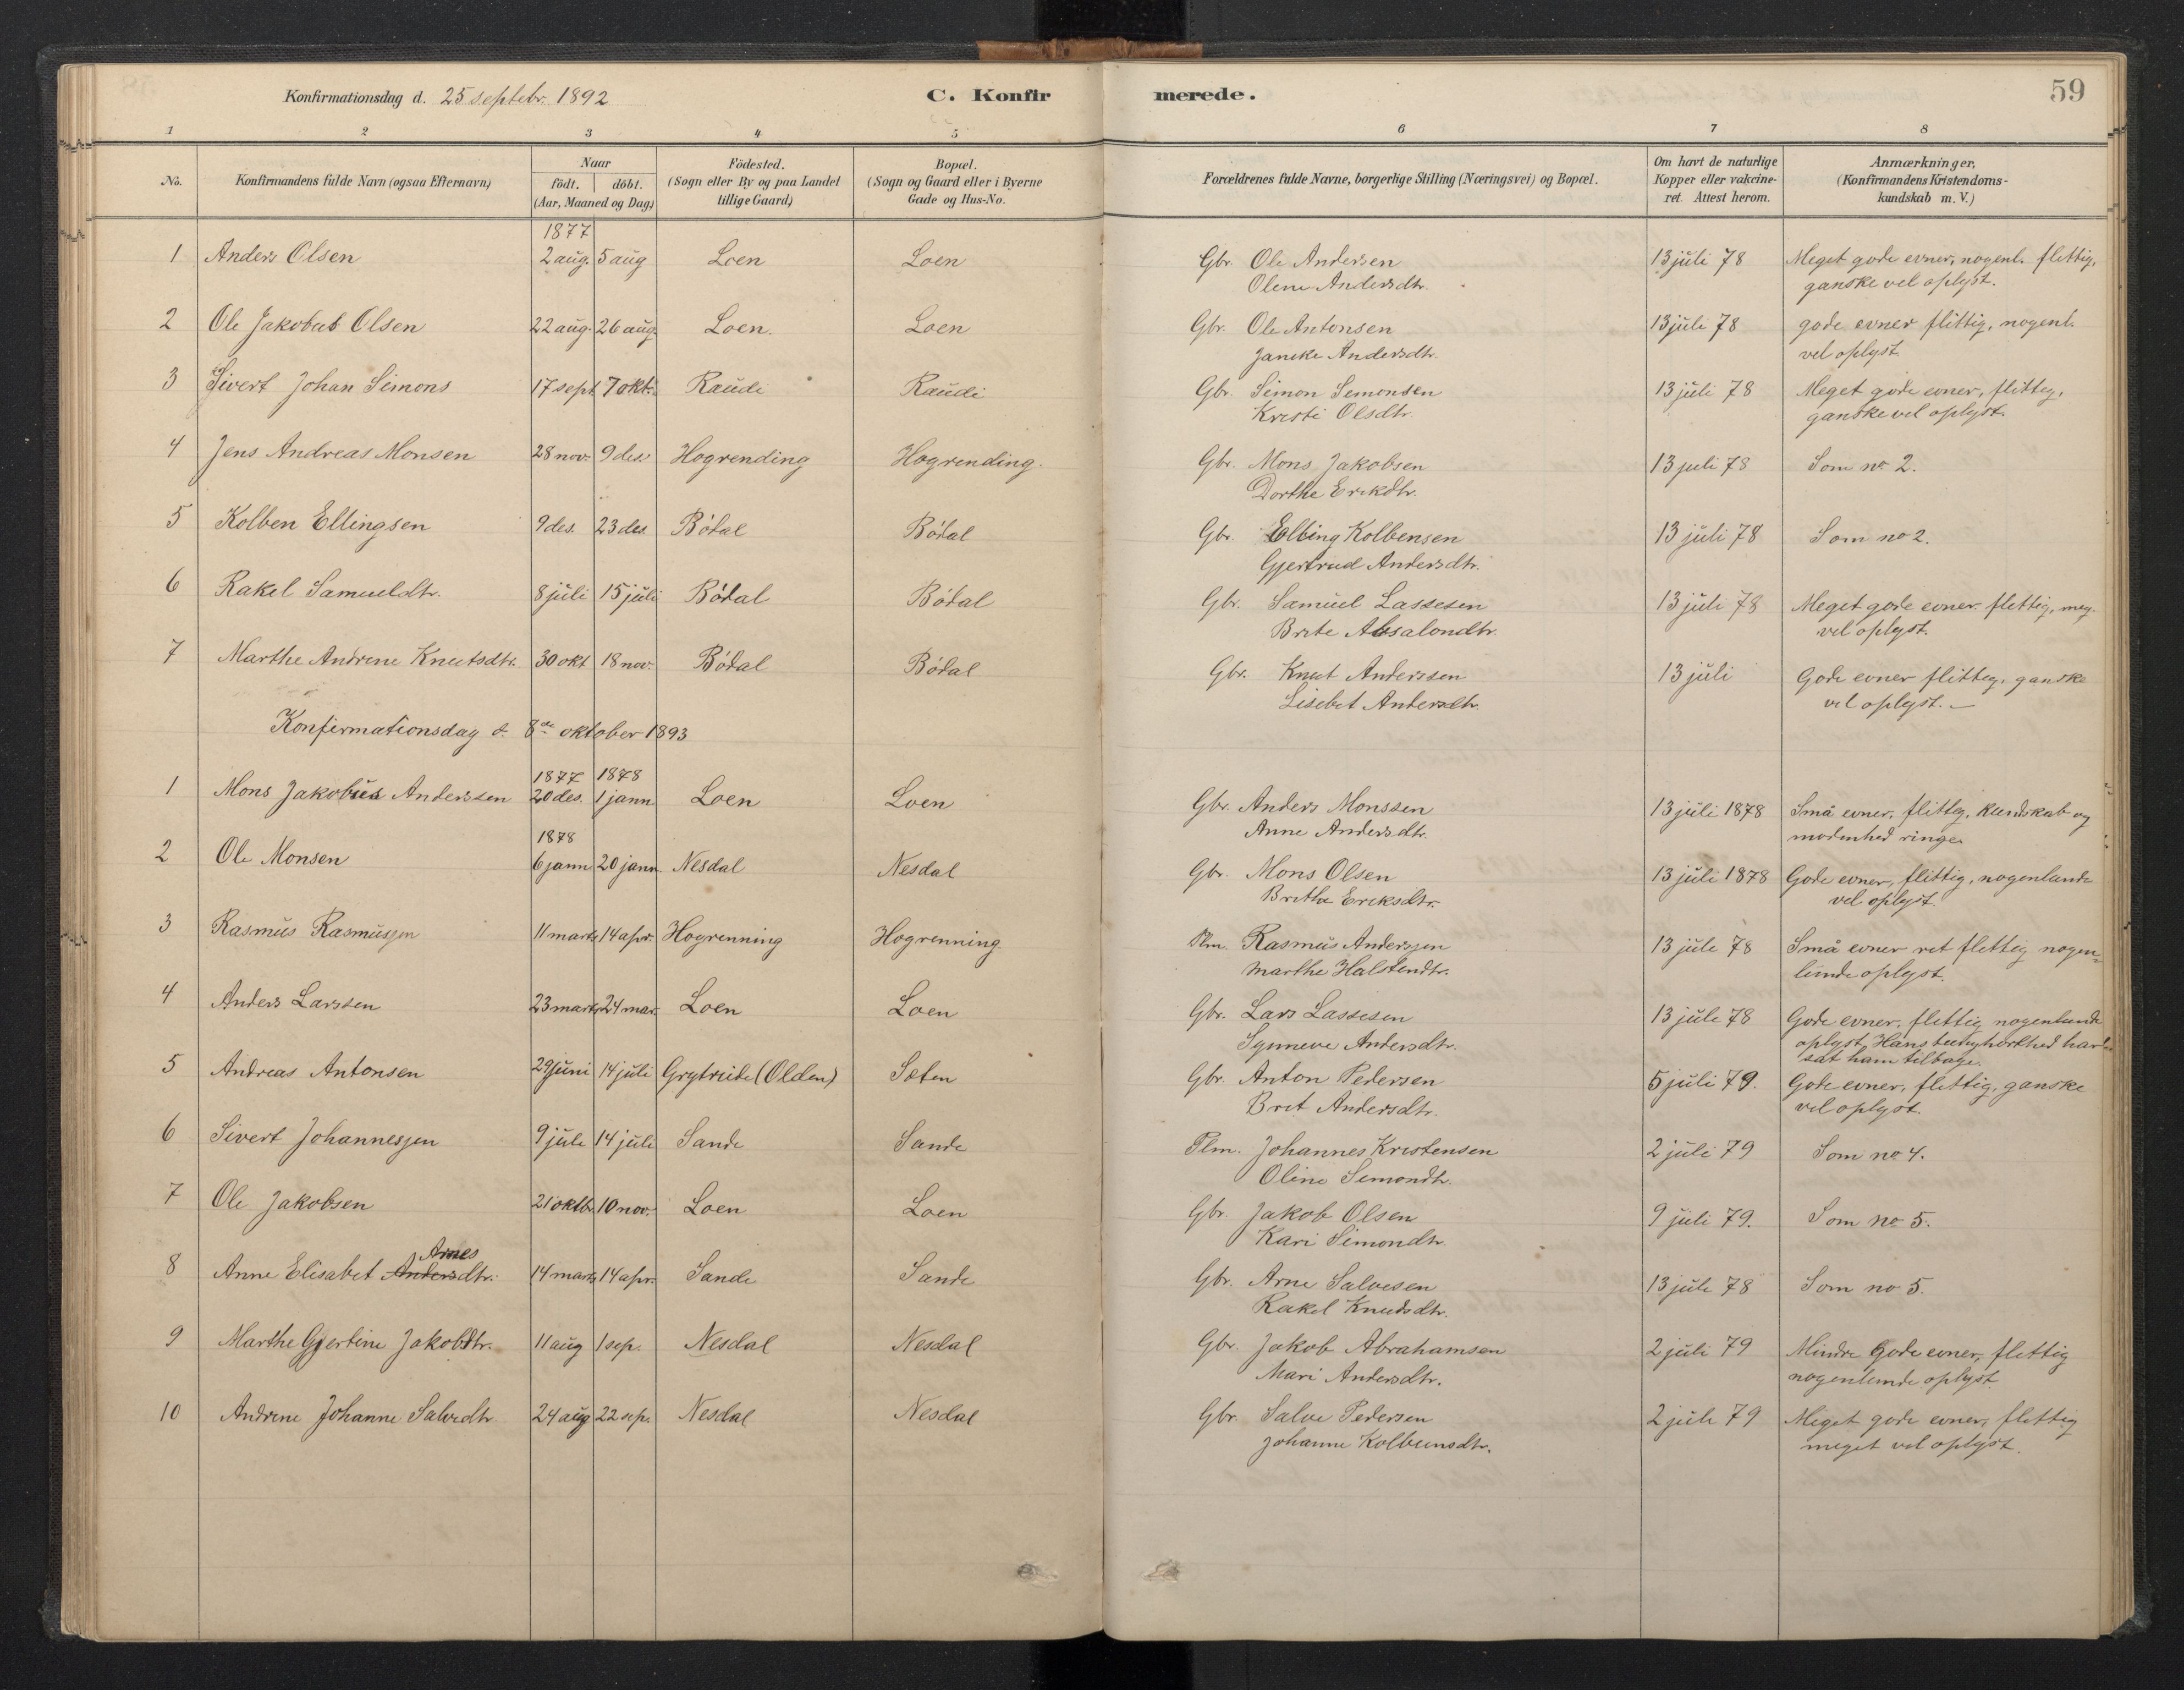 Konfirmationsdag d. 25 septebr. 1892 C. Konfir merede. 59
1 2 3 4 5 6 7 8
No. Konfirmandens fulde Navn (ogsaa Efternavn) Naar födt. döbt. (Aar, Maaned og Dag) Födested. (Sogn eller By og paa Landet tillige Gaard) Bopæl. (Sogn og Gaard eller i Byerne Gade og Hus-No. Forældrenes fulde Navne, borgerlige Stilling (Næringsvei) og Bopæl. Om havt de naturlige Kopper eller vakcineret. Attest herom. Anmærkninger. (Konfirmandens Kristendomskundskab m. V.)
1877
1 Anders Olsen 2 aug. 5 aug Loen Loen Gbr. Ole Andersen 13 juli 78 Meget gode evner, nogenl. flittig,
Olene Andersdtr. ganske vel oplyst.
2 Ole Jakobus Olsen 22 aug. 26 aug. Loen. Loen Gbr. Ole Antonsen 13 juli 78 gode evner flittig, nogenl.
Janike Andersdtr. vel oplyst.
3 Sivert Johan Simons 17 sept 7 okt. Raudi Raudi Gbr. Simon Simonsen 13 juli 78 Meget gode evner, flittig,
Kristi Olsdtr. ganske vel oplyst.
4 Jens Andreas Monsen 28 nov. 9 des. Hogrending Hogrending. Gbr. Mons Jakobsen 13 juli 78 Som no 2.
Dorthe Erikdtr.
5 Kolben Ellingsen 9 des. 23 des. Bödal Bödal Gbr. Elling Kolbensen 13 juli 78 Som no 2.
Gjertrud Andersdtr.
6 Rakel Samueldtr. 8 juli 15 juli Bödal Bödal Gbr. Samuel Lassesen 13 juli 78 Meget gode evner flittig, meg.
Brite Absalondtr. vel oplyst.
7 Marthe Andrine Knutsdtr. 30 okt 18 nov. Bödal Bödal Gbr. Knut Anderssen 13 juli Gode evner flittig, ganske
Lisebet Andersdtr. vel oplyst. —
Konfirmationsdag d. 8de oktober 1893
1877 1878
1 Mons Jakobus Anderssen 20 des. 1 jann Loen Loen Gbr. Anders Monssen 13 juli 1878 Små evner, flittig, kundskab og
Anne Andersdtr. modenhed ringe
1878
2 Ole Monsen 6 jann. 20 jann. Nesdal Nesdal Gbr. Mons Olsen 13 juli 1878 Gode evner, flittig, nogenlunde
Brithe Eriksdtr. vel oplyst.
3 Rasmus Rasmussen 11 marts 14 apr. Hogrenning Hogrenning Plm. Rasmus Anderssen 13 juli 78 Små evner ret flittig nogen=
Marthe Halstendtr. lunde oplyst.
4 Anders Larssen 23 marts 24 mar. Loen Loen Gbr. Lars Lassesen 13 juli 78 Gode evner, flittig nogenlunde
Synneve Andersdtr. oplyst, Hans tunghørthed har
sat ham tilbage.
5 Andreas Antonsen 29 juni 14 juli Grytreite (Olden) Sæten Gbr. Anton Pedersen 5 juli 79. Gode evner, flittig, ganske
Brit Andersdtr. vel oplyst.
6 Sivert Johannessen 9 juli 14 juli Sande Sande Plm. Johannes Kristensen 2 juli 79 Som no 4.
Oline Simondtr.
7 Ole Jakobsen 21 oktbr. 10 nov. Loen Loen Gbr. Jakob Olsen 9 juli 79. Som no 5.
Kari Simondtr
Arnes
8 Anne Elisabet Andersdtr. 14 marts 14 apr. Sande Sande Gbr. Arne Salvesen 13 juli 78 Som no 5.
Rakel Knudsdtr.
9 Marthe Gjertine Jakobdtr. 11 aug 1 sep. Nesdal Nesdal Gbr. Jakob Abrahamsen 2 juli 79 Mindre Gode evner, flittig
Mari Andersdtr. nogenlunde oplyst.
10 Andrine Johanne Salvedtr 24 aug 22 sep. Nesdal Nesdal Gbr. Salve Pedersen 2 juli 79 Meget gode evner, flittig
Johanne Kolbeinsdtr. meget vel oplyst.